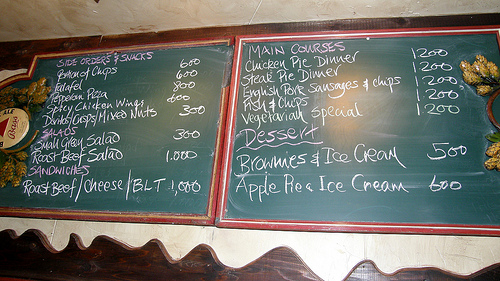 SIDE ORDERS & SNACKS
Portion of Chips 600
Falafel 600
Pepperoni Pizza 800
Spicy Chicken Wings 600
Doritos/Crisps/Mixed Nuts 300
SALADS
Small Green Salad 300
Roast Beef Salad 1.000
SANDWICHES
Roast Beef/Cheese/BLT 1,000
MAIN COURSES
Chicken Pie Dinner 1200
Steak Pie Dinner 1200
English Pork Sausages & chips 1200
Fish & Chips 1200
Vegetarian Special 1200
Dessert
Brownies & Ice Cream 500
Apple Pie & Ice Cream 600